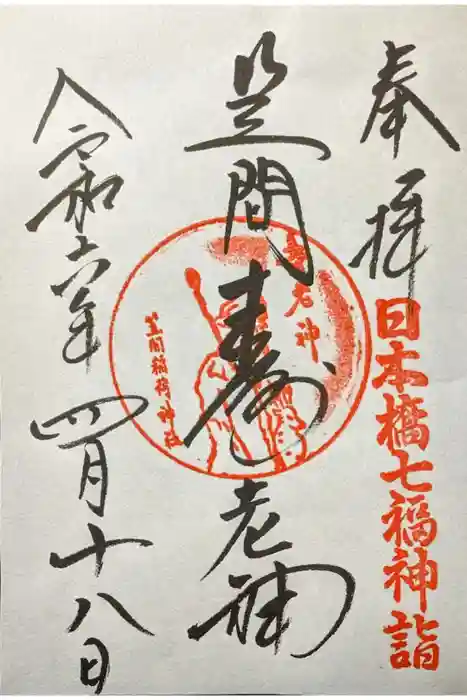 奉拝
日本橋七福神詣
笠間寿老神
寿老神
笠間稲荷神社
令和六年四月十八日